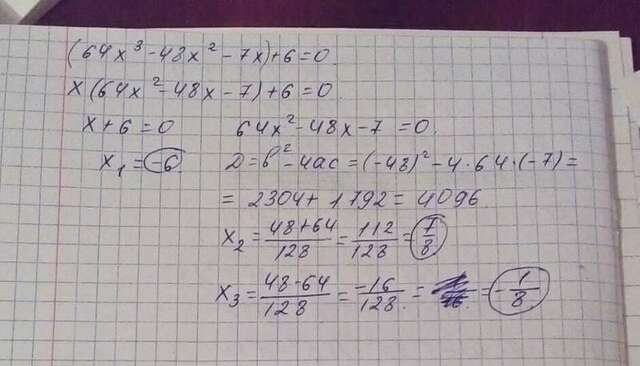 (64x³-48x²-7x)+6=0
x(64x²-48x-7)+6=0
x+6=0 64x²-48x-7=0
x₁=-6 D=b²-4ac=(-48)²-4·64·(-7)=
=2304+1792=4096
x₂=48+64/128=112/128=7/8
x₃=48-64/128=-16/128=-1/8